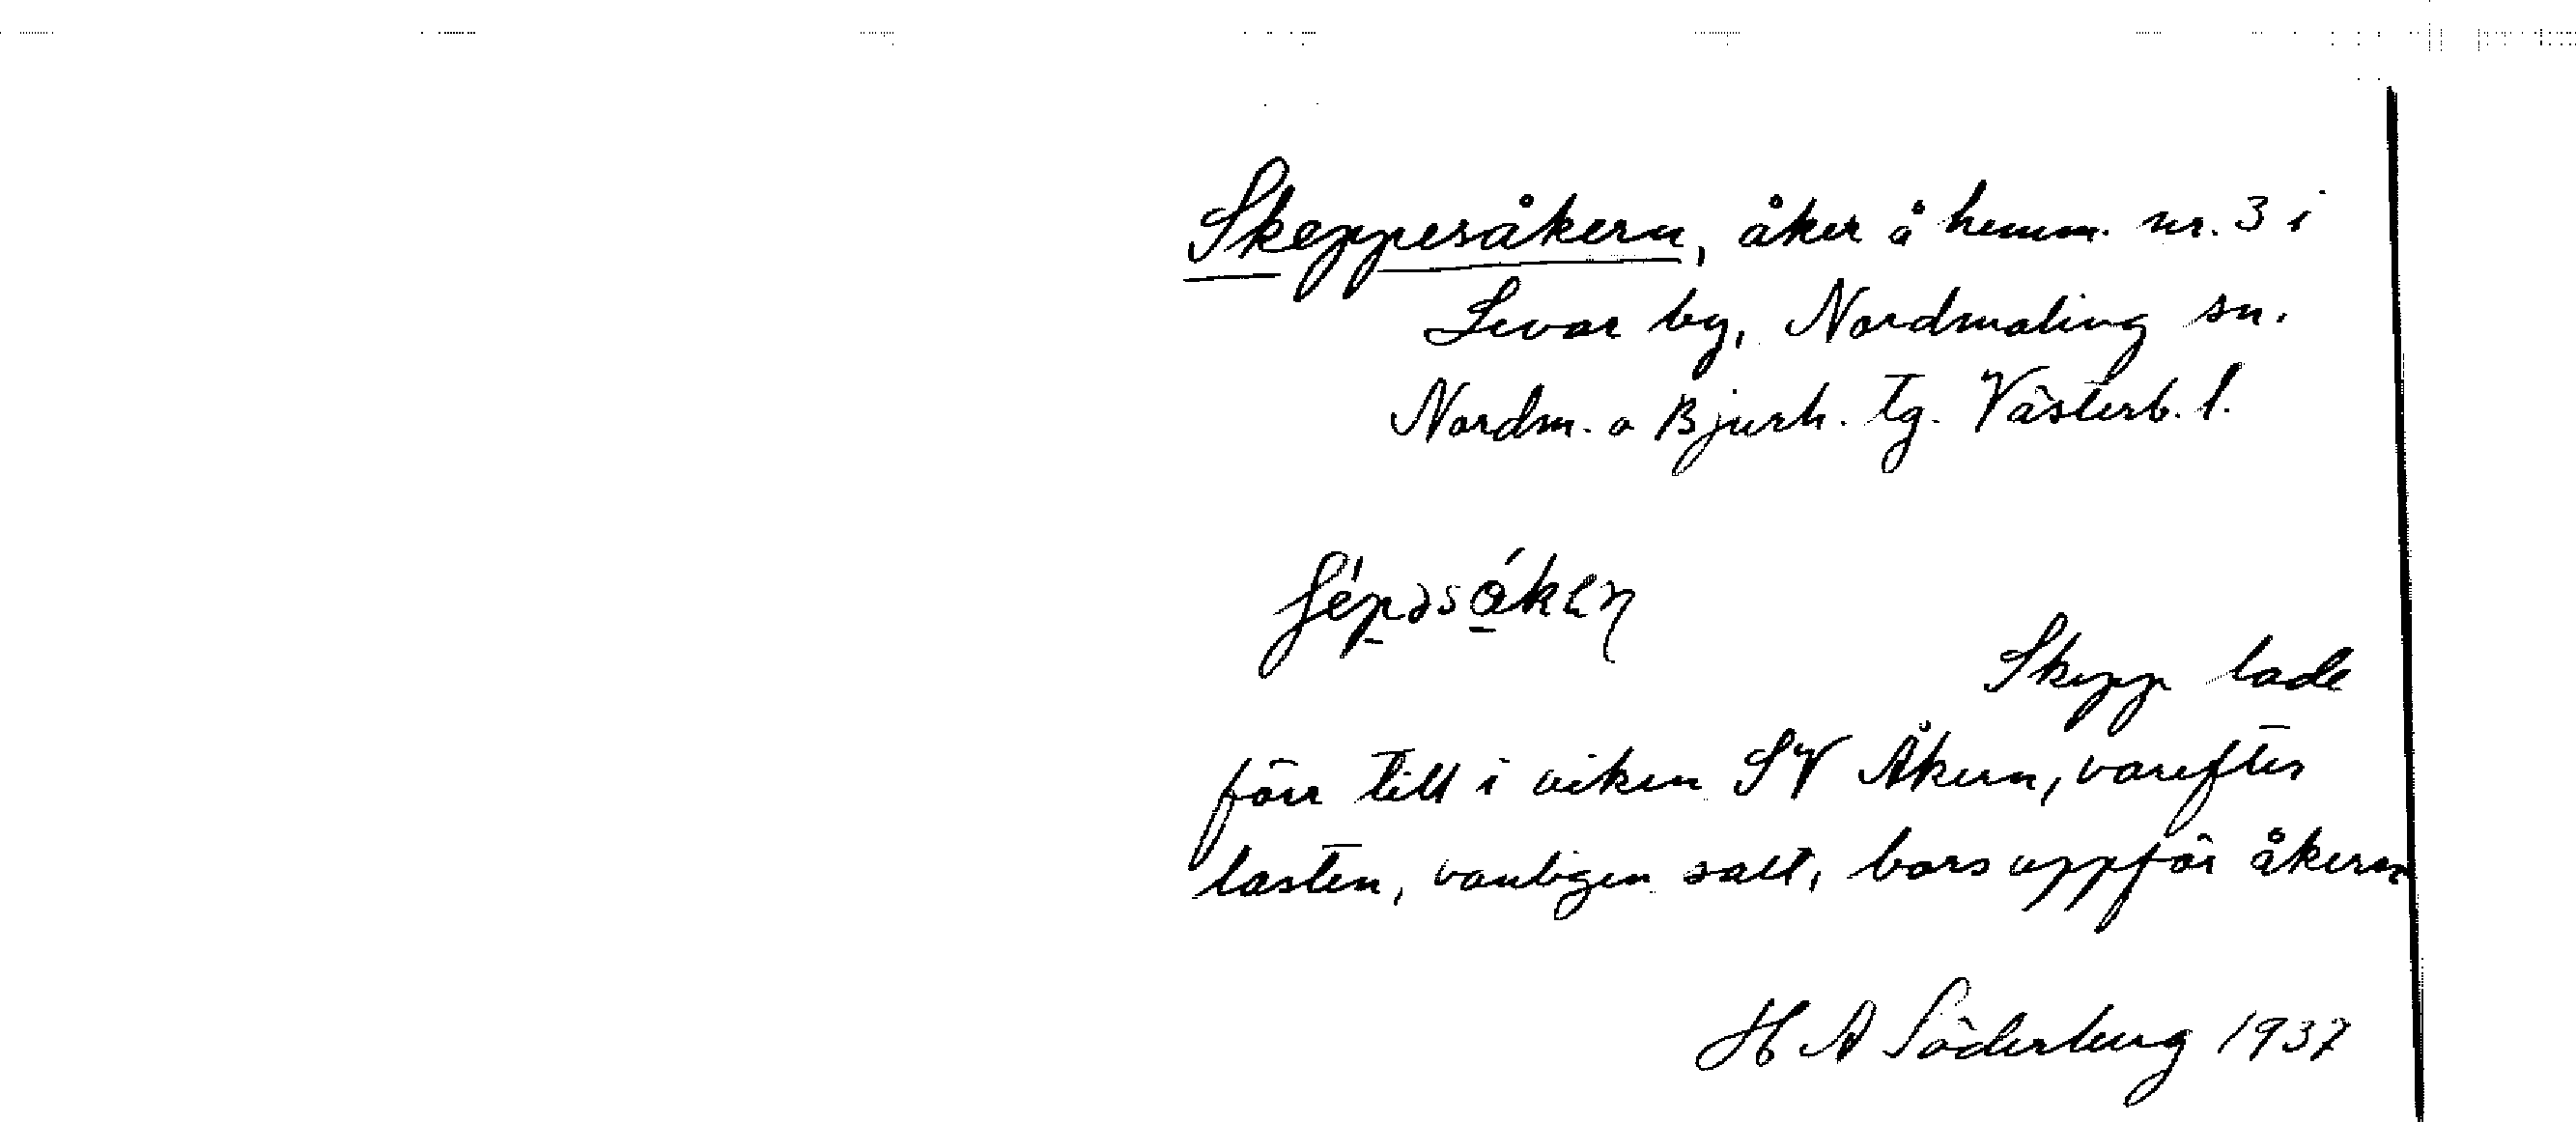 Skeppesåkern, åker å hemm. nr. 3 i
Levar by, Nordmaling sn.
Nordm. o Bjurh. tg. Västerb. l.
Skepp lade
förr till i viken SV Åkern, varefter
lasten, vanligen salt, bars uppför åkern
H A Söderberg 1937